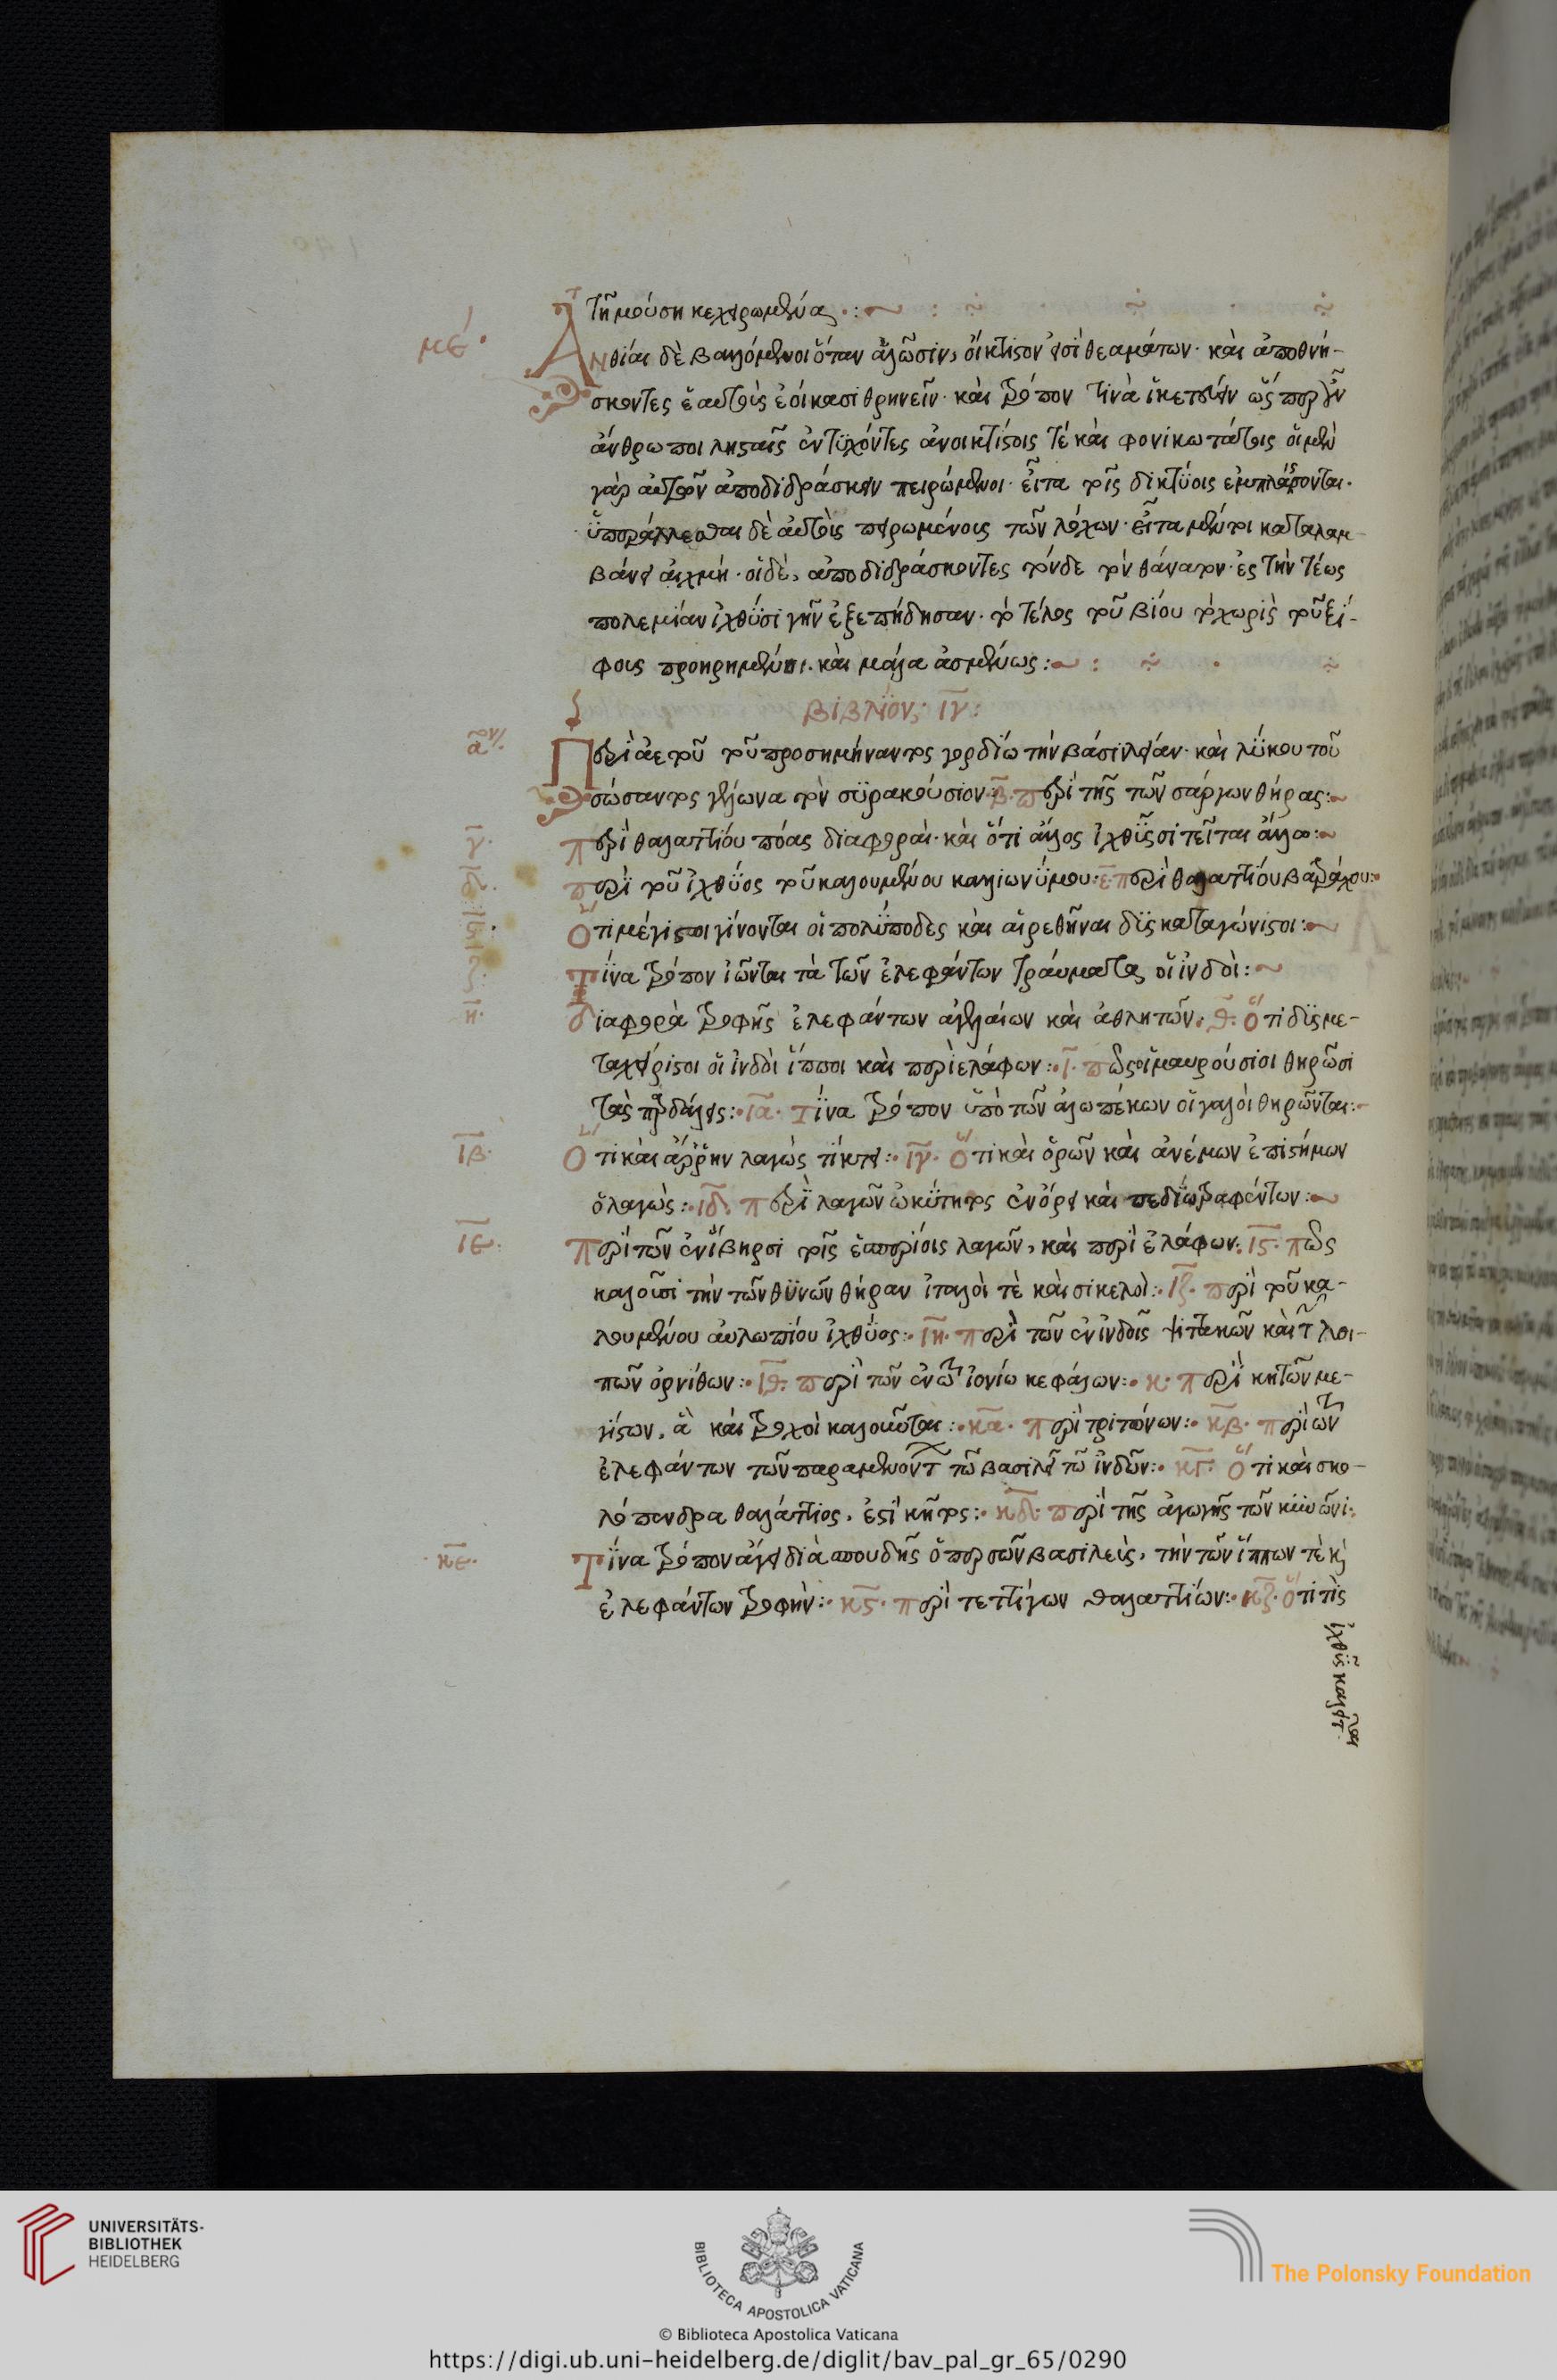 τῆ μούση κεχειρωμένα
με΄ Ανθίαι δὲ βαλλόμενοι ὅταν ἁλῶσιν, οἴκτιστον εἰσὶ θεαμάτων· καὶ ἀποθνή-
σκοντες ἑαυτοὺς ἐοίκασι θρηνεῖν· καὶ τρόπον τινὰ ἱκετεύειν ὥσπερ οὖν
ἄνθρωποι λησταῖς ἐντυχόντες ἀνοικτίστοις τέ καὶ φονικωτάτοις οἱ μὲν
γὰρ αὐτῶν ἀποδιδράσκειν πειρώμενοι· εἶτα τοῖς δικτύοις ἐμπλάττονται·
ὑπεράλλεσθαι δὲ αὐτοὺς πειρωμένοις τῶν λόχων· εἶτα μέντοι καταλαμ-
βάνει αἰχμή· οἱ δὲ, ἀποδιδράσκοντες τόνδε τὸν θάνατον· ἐς τὴν τέως
πολεμίαν ἰχθύσι γῆν ἐξεπήδησαν· τὸ τέλος τοῦ βίου τὸ χωρὶς τοῦ ξί-
φους προηρημένοι· καὶ μάλα ἀσμένως:
βιβλίον· ιγ:
α̅ον Περὶ ἀετοῦ τοῦ προσημήναντος γορδίω τὴν βασιλείαν· καὶ λύκου τοῦ
σώσαντος γέλωνα τὸν συρακούσιον· β· περὶ τῆς τῶν σάργων θήρας:
γ· περὶ θαλαττίου πόας διαφοραὶ· καὶ ὅτι ἄλλος ἰχθῦς σιτεῖται ἄλλο:
περὶ τοῦ ἰχθύος τοῦ καλουμένου καλλιωνύμου· ε· περὶ θαλαττίου βατράχου:
Ὅτι μέγιστοι γίνονται οἱ πολύποδες καὶ αἱρεθῆναι δυσκαταγώνιστοι:
Τίνα τρόπον ἰῶνται τὰ τῶν ἐλεφάντων τραύματα οἱ ἰνδοὶ:
η· διαφορὰ τροφῆς ἐλεφάντων ἀγελαίων καὶ ἀθλητῶν· θ· ὅτι δυσμε-
ταχείριστοι οἱ ἰνδοὶ ἵπποι καὶ περὶ ελάφων: ι· πῶς οἱ μαυρούσιοι θηρῶσι
τὰς παρδάλεις: ια· τίνα τρόπον ὑπὸ τῶν ἀλωπέκων οἱ γαλοὶ θηρῶνται:
ιβ· Ὅτι καὶ ἄρρην λαγὼς τίκτει: ιγ· ὅτι καὶ ὁρῶν καὶ ἀνέμων ἐπιστήμων
ὁ λαγὼς: ιδ· περὶ λαγῶν ὠκύτητος ἐν ὄρει καὶ πεδίω τραφέντων:
ιε· περὶ τῶν ἐν ἴβηρσι τοῖς ἑσπερίοις λαγῶν, καὶ περὶ ἐλάφων: ις· πῶς
καλοῦσι τὴν τῶν θύνων θήραν ἰταλοὶ τὲ καὶ σικελοὶ: ιζ· περὶ τοῦ κα-
λουμένου αὐλωπίου ἰχθύος: ιη· περὶ τῶν ἐν ἰνδοῖς ψιττακῶν καὶ τῶν λοι-
πῶν ὀρνίθων: ιθ· περὶ τῶν ἐν τῶ ἰονίω κεφάλων: κ· περὶ κητῶν με-
γίστων, ἃ καὶ τροχοὶ καλοῦνται: κα· περὶ τριτώνων: κβ· περὶ τῶν
ἐλεφάντων τῶν παραμενόντων τῶ βασιλεῖ τῶν ἰνδῶν: κγ· ὅτι καὶ σκο-
λόπενδρα θαλάττιος, ἐστὶ κῆτος: κδ· περὶ τῆς ἀγωγῆς τῶν κυνῶν:
κε· Τίνα τρόπον ἄγει διὰ σπουδῆς ὁ περσῶν βασιλεὺς, τὴν τῶν ἵππων τὲ καὶ
ἐλεφάντων τροφὴν: κς· περὶ τεττίγων θαλαττίων: κζ· ὅτι τὶς
ἰχθῦς καλεῖται
UNIVERSITÄTS-
BIBLIOTHEK
HEIDELBERG
BIBLIOTECA APOSTOLICA VATICANA
The Polonsky Foundation
© Biblioteca Apostolica Vaticana
https://digi.ub.uni-heidelberg.de/diglit/bav_pal_gr_65/0290